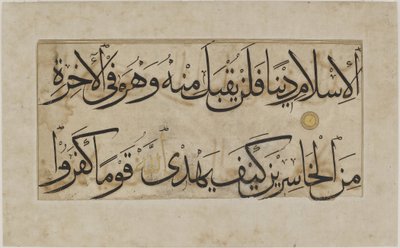 الاسلام دينا فلن يقبل منه وهو في الاخرة
من الخاسرين كيف يهدى الله قوما كفروا